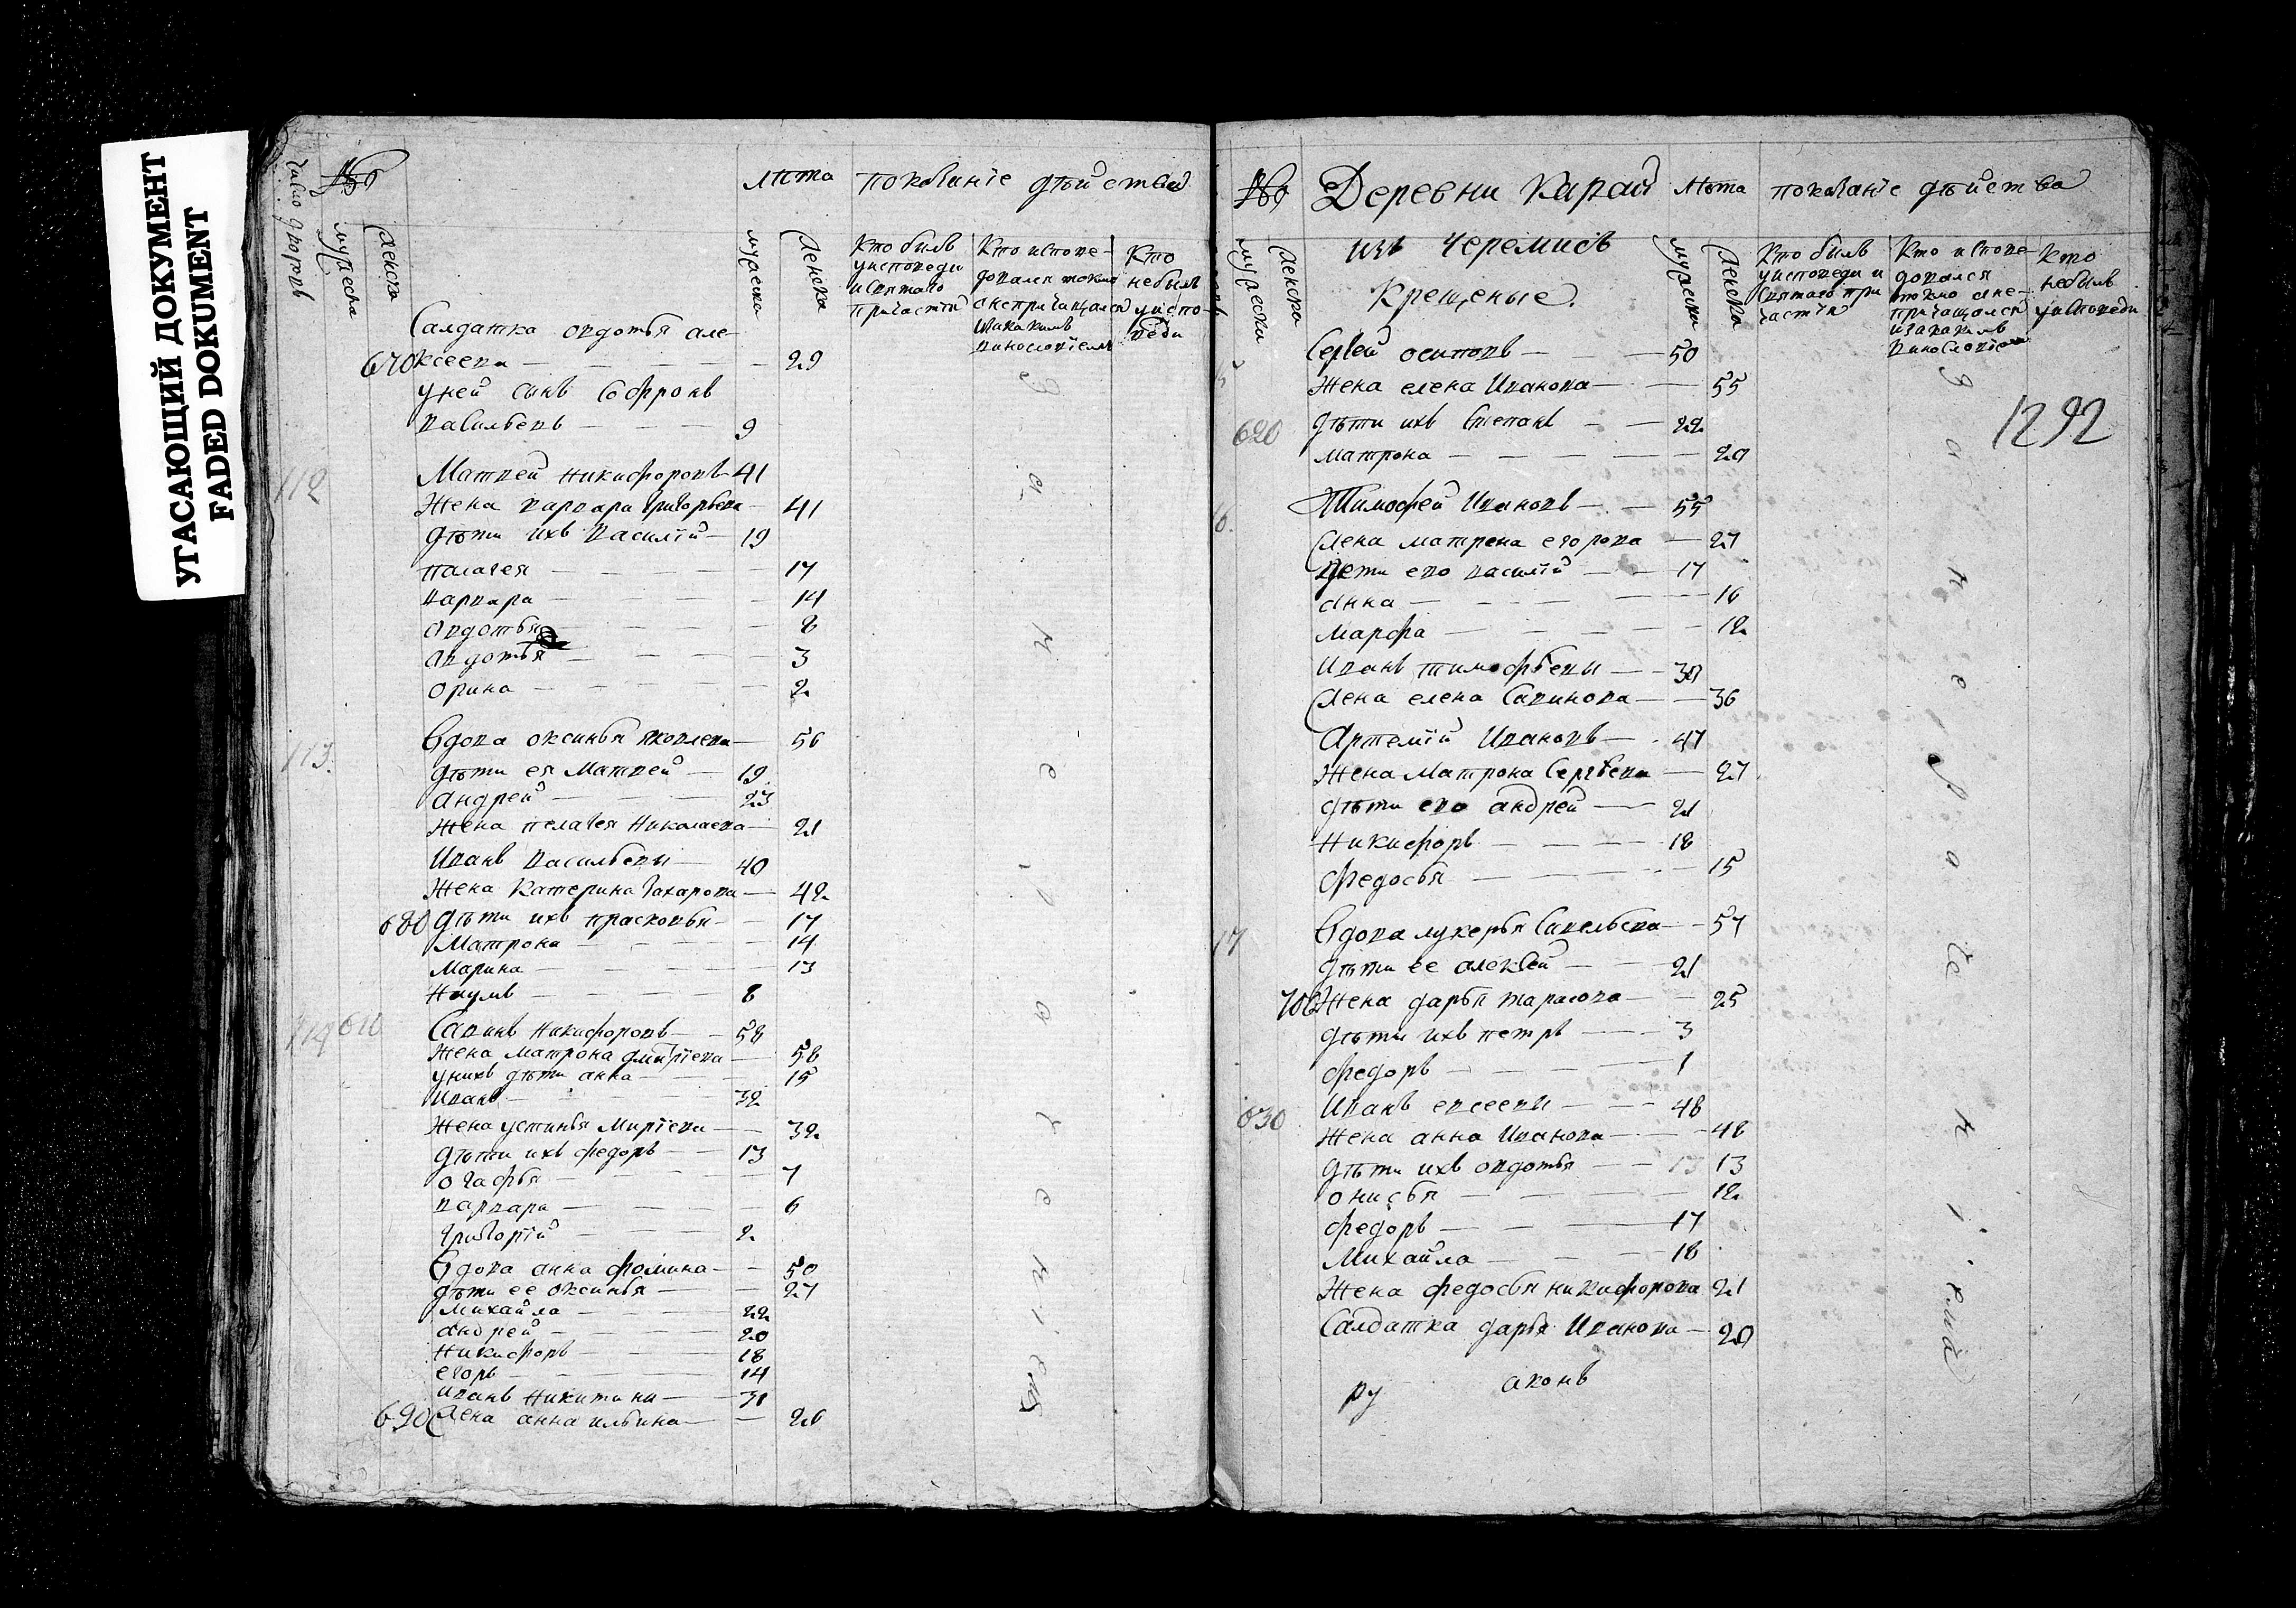 УГАСАЮЩИЙ ДОКУМЕНТ
FADED DOKUMENT
число дворовъ
мужеска
женска
лѣта
показанїе дѣйства
мужеска
женска
Кто былъ у исповеди и святаго причастия
Кто исповедался токмо а не причащался и за какимъ винословїемъ
Кто небылъ у исповеди
Салдатка овдотья але-
670 ксеева — 29
у ней сынъ Софронъ
васильевъ — 9
112 Матвей никифоровъ 41
Жена варвара григорьева — 41
дѣти ихъ василїй — 19
палагея — 17
варвара — 14
авдотья — 8
авдотья — 3
орина — 2
113. вдова оксинья яковлева — 56
дѣти ея Матвей — 19
андрей — 23
Жена пелагея николаева — 21
Иванъ васильевъ — 40
Жена катерина захарова — 42
680 дѣти ихъ прасковья — 17
Матрона — 14
Марина — 13
наумъ — 8
114 610 Савинъ никифоровъ — 58
Жена матрона дмитрїева — 58
у нихъ дѣти анна — 15
Иванъ — 32
Жена устинья — 32
дѣти ихъ федоръ — 13
огафья — 7
варвара — 6
григорїй — 2
вдова анна фомина — 50
дѣти ее оксинья — 27
михайла — 22
андрей — 20
никифоръ — 18
егоръ — 14
иванъ никитинъ — 31
690 жена анна ильина — 26
за не
Деревни Карай
изъ черемисъ
Крещеные.
лѣта
показанїе дѣйства
мужеска
женска
мужеска
женска
Кто былъ у исповеди и святаго причастїя
Кто исповедался токмо а не причащался и за какимъ винословїем
кто небылъ у исповеди
1292
Сергей осиповъ — 50
Жена елена Иванова — 55
620 дѣти ихъ Степанъ — 22
матрона — 20
Тимофей Ивановъ — 55
Жена матрена егорова — 27
дети ево василїй — 17
анна — 16
марфа — 12
Иванъ тимофеевъ — 30
Жена елена Савинова — 36
Артемїй Ивановъ — 47
Жена Матрона Сергѣева — 27
дѣти ево андрей — 21
никифоръ — 18
федосья — 15
17 вдова лукерья Савельева — 57
дѣти ее алексѣй — 21
700 Жена дарья тарасова — 25
дѣти ихъ петръ — 3
федоръ — 1
Иванъ евсеевъ — 48
630 Жена анна Иванова — 48
дѣти ихъ овдотья — 13 13
онисья — 12
федоръ — 17
Михайла — 18
Жена федосья никифорова 21
Салдатка дарья Иванова — 20
ру аконъ